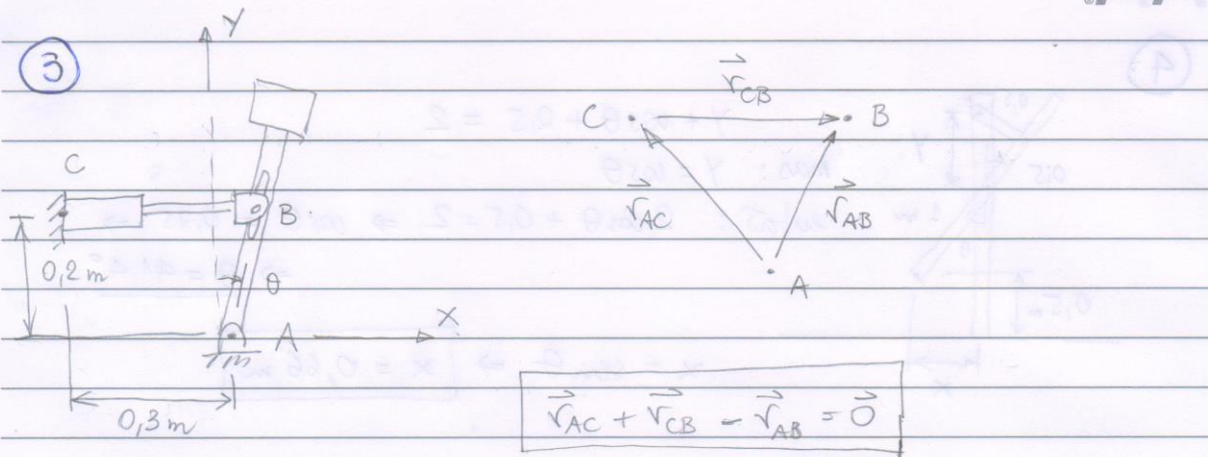 3
Y
C
B
0,2 m
θ
A
X
0,3 m
r_CB
C
B
r_AC
r_AB
A
r_AC + r_CB - r_AB = 0